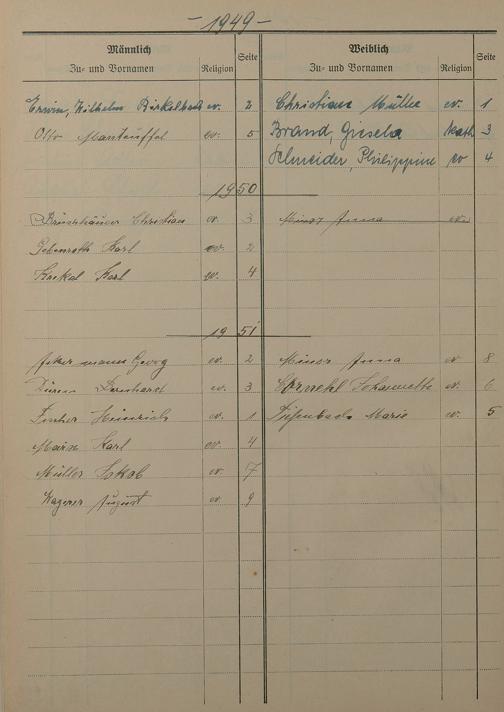 - 1949 -
Männlich Weiblich
Zu- und Vornamen Religion Seite Zu- und Vornamen Religion Seite
Erwin, Wilhelm Birkelbach ev. 2 Christiane Müller ev. 1
Otto ev. 5 Brand, Gisela Kath 3
Schneider, Philippine ev 4
1950
Christian ev. 3 Minor Anna ev.
Karl ev. 2
Krekel Karl ev. 4
1951
Ackermann Georg ev. 2 Minor Anna ev 8
ev. 3 ev. 6
Fischer Heinrich ev. 1 Marie ev. 5
Karl ev. 4
Müller Jakob ev. 7
Wagener August ev. 9